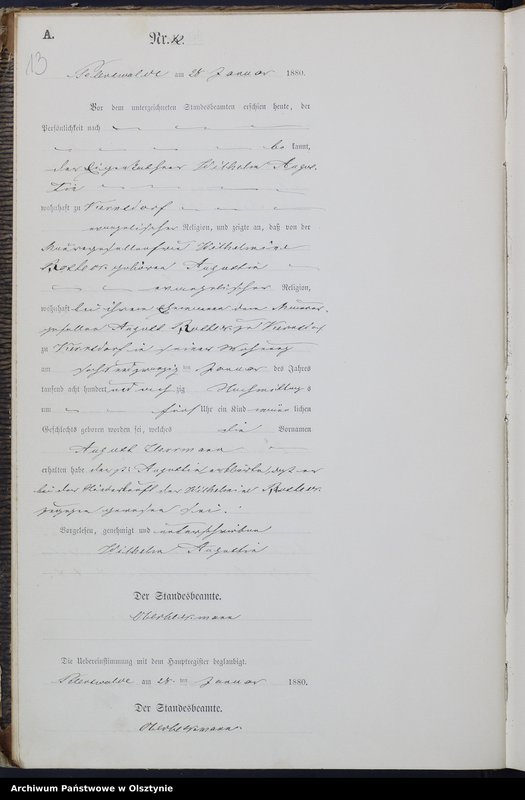 A.
Nr. 12.
13
Peterswalde am 28 Januar 1880.
Vor dem unterzeichneten Standesbeamten erschien heute, der
Persönlichkeit nach
be kannt,
der Eigenkäthner Wilhelm Augus-
tin
wohnhaft zu
evangelischer Religion, und zeigte an, daß von der
Maurergesellenfrau Wilhelmine
geboren Augustin
evangelischer Religion,
wohnhaft bei ihrem Ehemann dem Maurer-
gesellen August zu
zu in seiner Wohnung
am sechs und zwanzig ten Januar des Jahres
tausend acht hundert und acht zig Nachmittag s
um fünf Uhr ein Kind männ lichen
Geschlechts geboren worden sei, welches die Vornamen
August Herrmann
erhalten habe der p. Augustin erklärte, daß er
bei der Niederkunft der Wilhelmine
zugegen gewesen sei.
Vorgelesen, genehmigt und unterschrieben
Wilhelm Augustin
Der Standesbeamte.
Die Uebereinstimmung mit dem Hauptregister beglaubigt.
Peterswalde am 28. ten Januar 1880.
Der Standesbeamte.
Archiwum Państwowe w Olsztynie